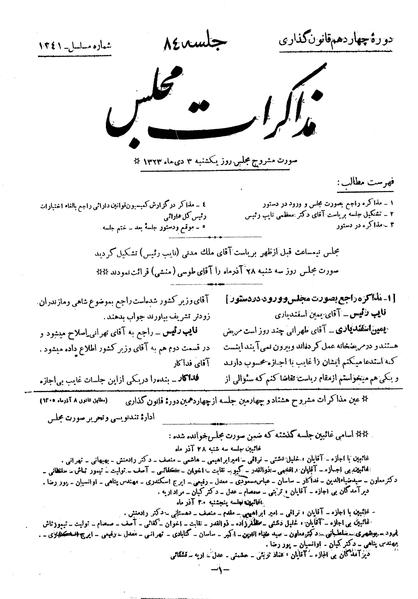 دورهٔ چهاردهم قانون گذاری
جلسه ۸۴
شماره مسلسل - ۱۲۴۱
مذاکرات مجلس
صورت مشروح مجلس روز یکشنبه ۳ دی ماه ۱۳۲۳ *
فهرست مطالب:
۱ - مذاکره راجع بصورت مجلس و ورود در دستور
۲ - تشکیل جلسه بریاست آقای دکتر معظمی نایب رئیس
۳ - مذاکره در دستور
۴ - مذاکره در گزارش کمیسیون قوانین دارائی راجع بالغاء اختیارات
رئیس کل دارائی
۵ - موقع و دستور جلسه بعد - ختم جلسه
مجلس نیمساعت قبل از ظهر بریاست آقای ملک مدنی (نایب رئیس) تشکیل گردید
صورت مجلس روز سه شنبه ۲۸ آذر ماه را آقای طوسی (منشی) قرائت نمودند **
[۱ - مذاکره راجع بصورت مجلس و ورود در دستور]
نایب رئیس - آقای یمین اسفندیاری
یمین اسفندیاری - آقای طهرانی چند روز است مریض
هستند و در مریضخانه عمل کرده‌اند و بیرون نمی‌آیند اینست
که استدعا میکنم ایشان را غایب با اجازه محسوب دارند
و یکی هم میخواستم از مقام ریاست تقاضا کنم که سئوالی از
آقای وزیر کشور شده است راجع بموضوع شاهی و مازندران
زودتر تشریف بیاورند جواب بدهند.
نایب رئیس - راجع به آقای تهرانی اصلاح میشود و
در قسمت دوم هم به آقای وزیر کشور اطلاع داده میشود.
آقای فداکار
فداکار - بنده را در یکی از این جلسات غایب بی اجازه
* عین مذاکرات مشروح هشتاد و چهارمین جلسه از چهاردهمین دورهٔ قانون گذاری
(مطابق قانون ۸ آذر ماه ۱۳۰۵)
ادارهٔ تندنویسی و تحریر صورت مجلس
** اسامی غائبین جلسه گذشته که ضمن صورت مجلس خوانده شده:
غائبین جلسه سه شنبه ۲۸ آذر ماه
غائبین بی اجازه - آقایان:
غائبین جلسه پنجشنبه ۳۰ آذر ماه
غائبین با اجازه - آقایان:
دیر آمدگان بی اجازه - آقایان:
-۱-